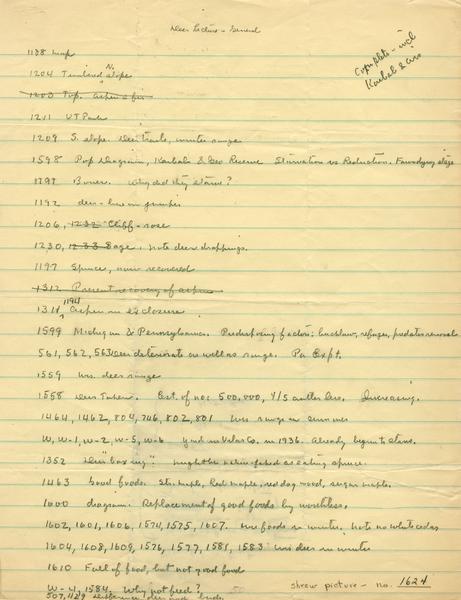 Deer Lecture - General
Complete - incl
Kaibab & Wis
1138 map
1204 Timbered N. slope
1203 Pop. aspen & fir
1211 VT Park
1209 S. slope. Deer trails, winter range
1598 Pop Diagram, Kaibab & Geo Reserve Starvation vs Reduction.
1197 Bones. Why did they starve?
1192 deer-line on juniper
1206, 1232 Cliff-rose
1230, 1233 Sage, note deer droppings.
1197 Spruce, now recovered
1312 Present recovery of aspen
1311, 1194 Aspen in exclosure
1599 Michigan & Pennsylvania. Predisposing factors: bucklaw, refuges, predator removal
561, 562, 563 Deer deteriorate as well as range. Pa Expt.
1559 Wis. deer range
1558 Deer Taken. Est. of no: 500,000, 4/5 antlerless. Increasing.
1464, 1462, 804, 746, 802, 801 Wis range in summer
W, W-1, W-2, W-5, W-6 Yard in Vilas Co. in 1936. Already begun to starve.
1352 Deer "boxing".
1463 Good foods. Str. maple, Red maple, red dogwood, sugar maple.
1600 diagram. Replacement of good foods by worthless.
1602, 1601, 1606, 1574, 1575, 1607. Wis foods in winter. Note no white cedar
1604, 1608, 1609, 1576, 1577, 1581, 1583 Wis deer in winter
1610 Full of food, but not good food
W-4, 1584. Why not feed?
shrew picture - no. 1624
507, 1129